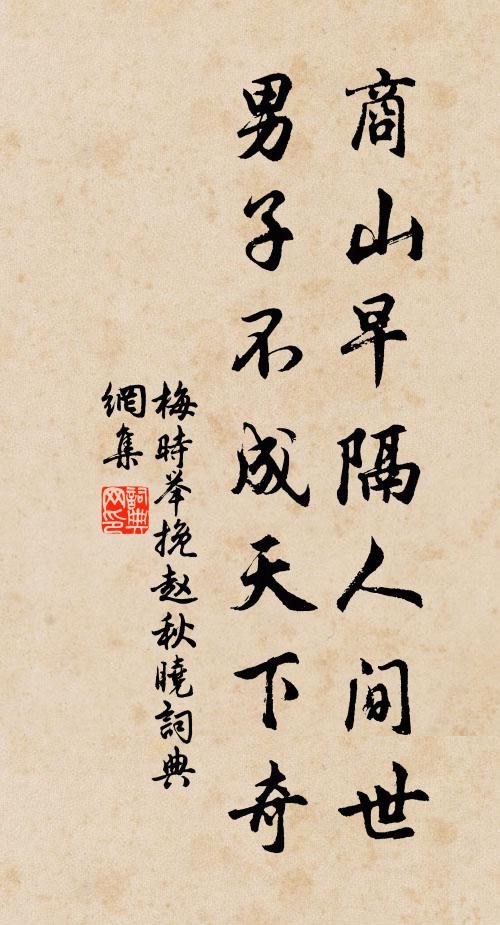 商山早隔人间世
男子不成天下奇
梅時举挽赵秋曉詞典
網集
詞典
网印